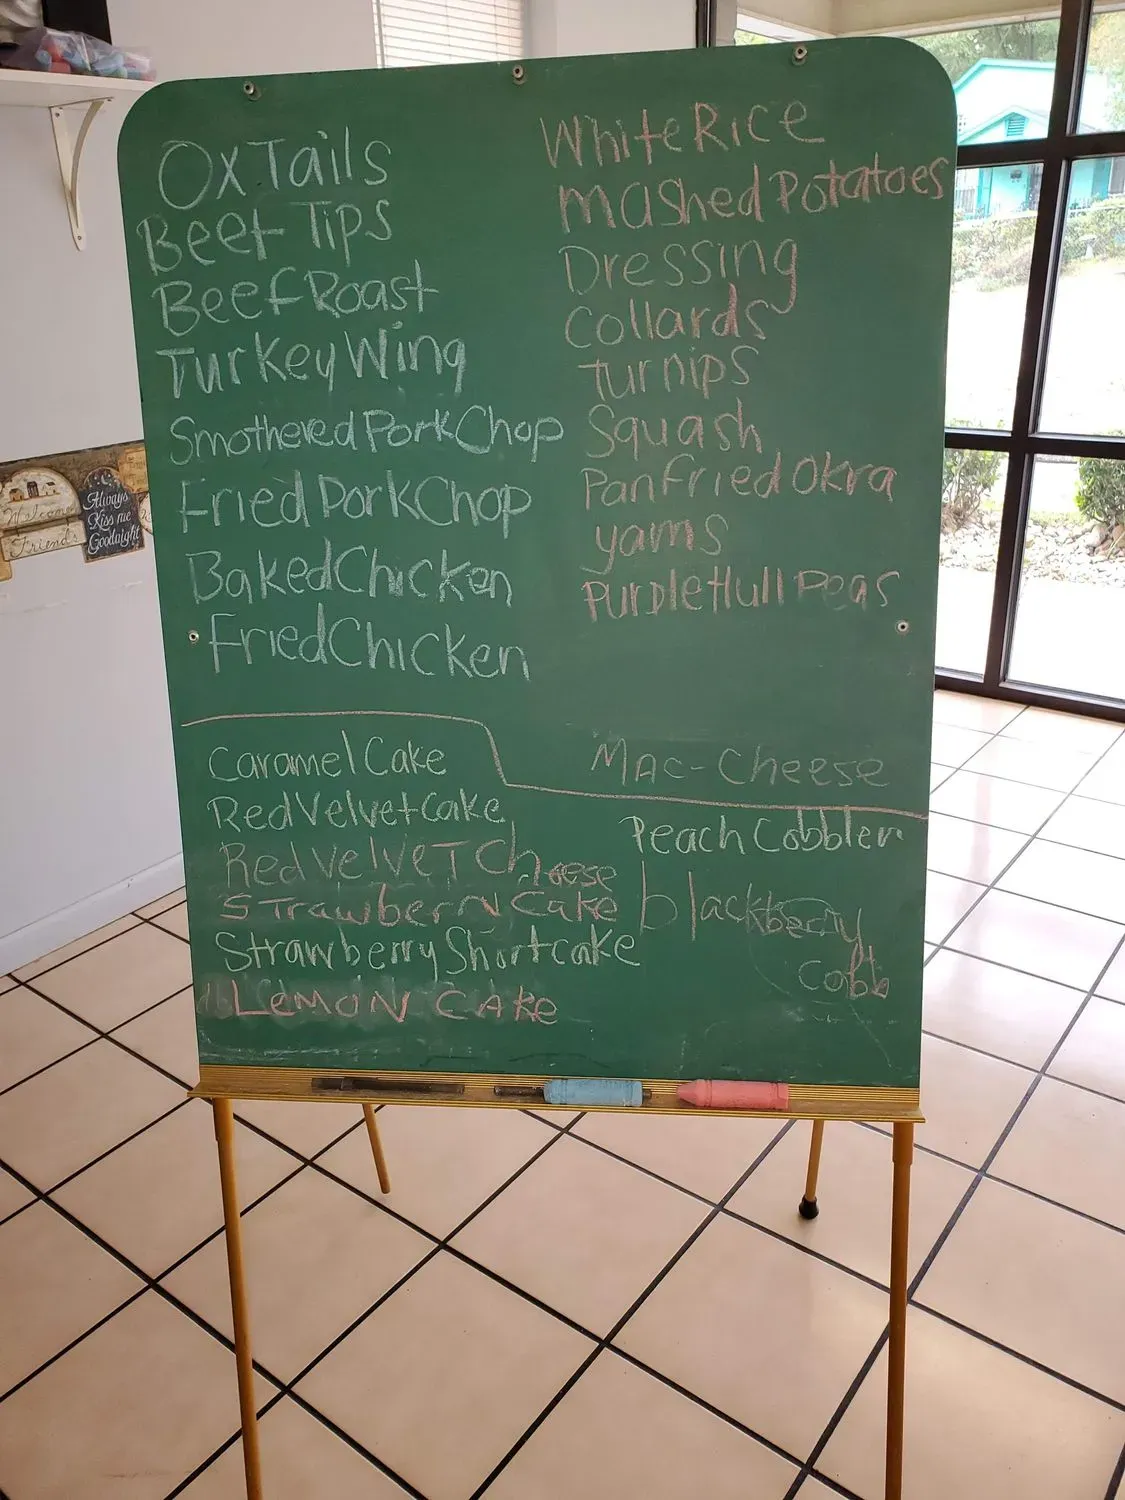 OxTails
Beef Tips
Beef Roast
Turkey Wing
Smothered Pork Chop
Fried Pork Chop
Baked Chicken
Fried Chicken
White Rice
Mashed Potatoes
Dressing
Collards
Turnips
Squash
Pan Fried Okra
yams
Purple Hull Peas
Mac-Cheese
Caramel Cake
Red Velvet Cake
Red Velvet Cheese
Strawberry Cake
Strawberry Shortcake
Lemon Cake
Peach Cobbler
blackberry
Cobb
Welcome
Friends
Always
Kiss me
Goodnight